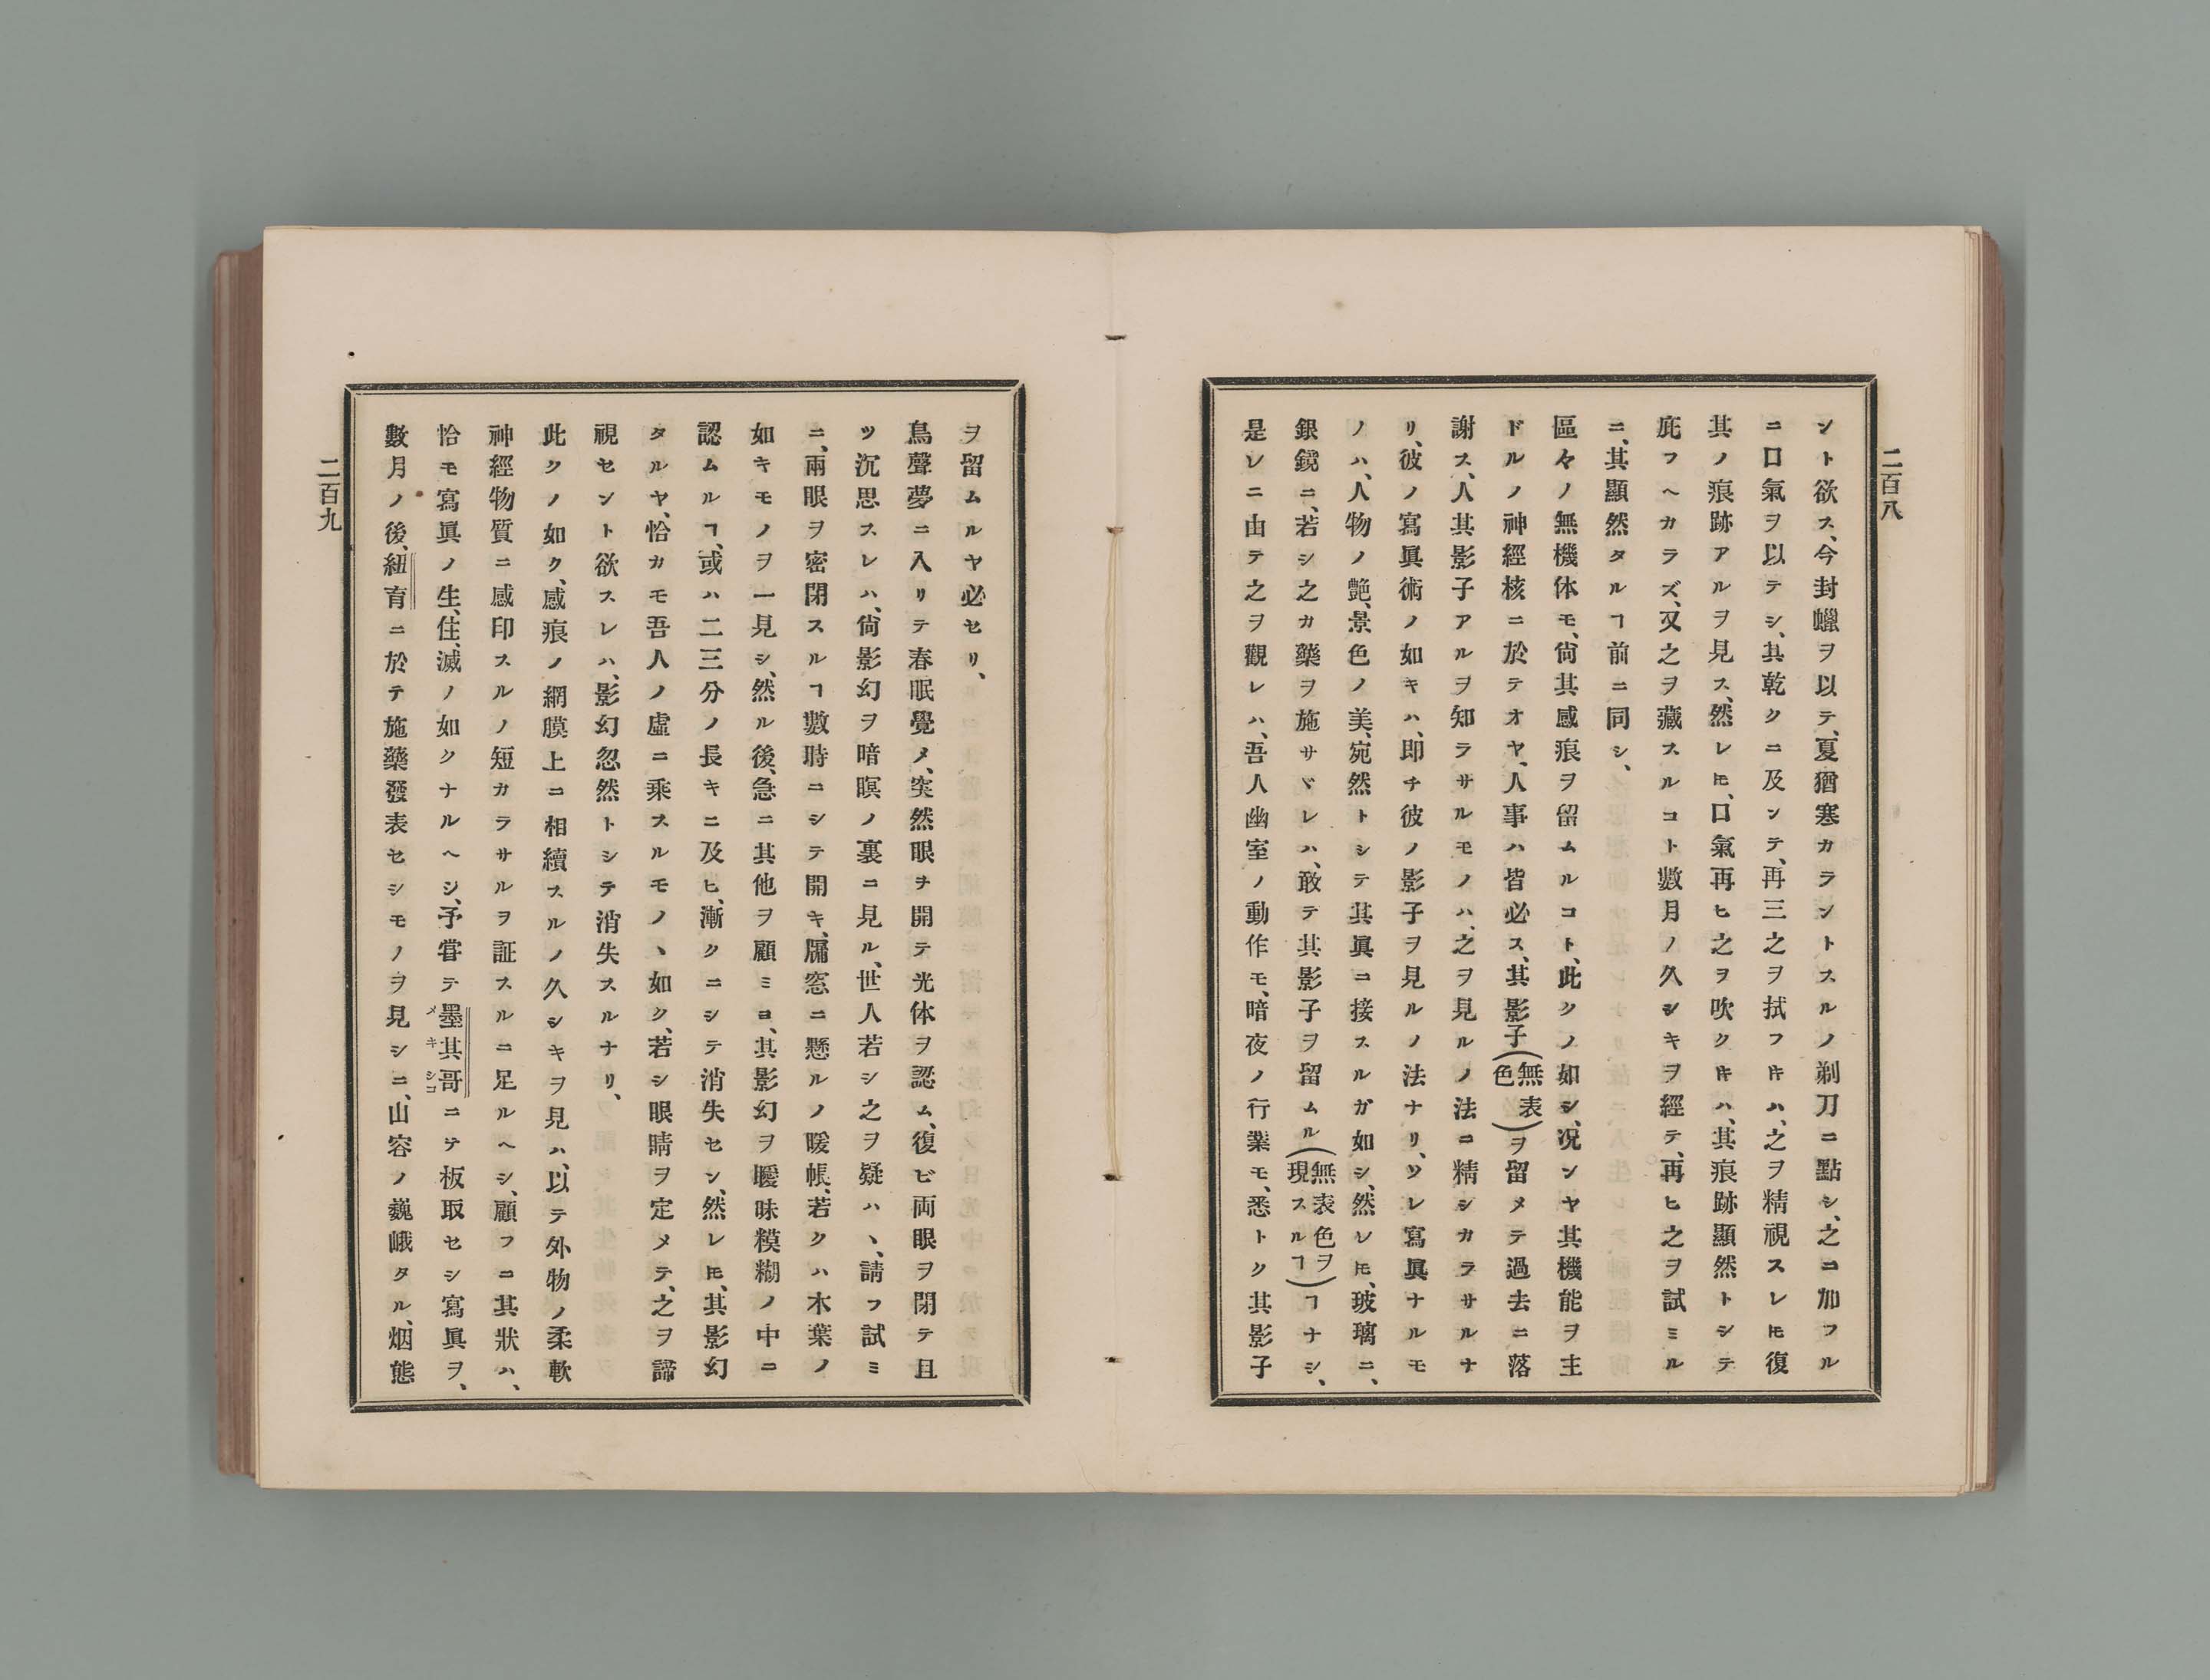 二百八
ント欲ス、今封蠟ヲ以テ、夏猶寒カラントスルノ剃刀ニ點シ、之ニ加フル
ニ口氣ヲ以テシ、其乾クニ及ンテ、再三之ヲ拭フキハ、之ヲ精視スレㇳモ復
其ノ痕跡アルヲ見ス、然レㇳモ、口氣再ヒ之ヲ吹クキハ、其痕跡顯然トシテ
庇フヘカラズ、又之ヲ藏スルコト數月ノ久シキヲ經テ、再ヒ之ヲ試ミル
ニ、其顯然タルヿ前ニ同シ、
區々ノ無機体モ、尙其感痕ヲ留ムルコト、此クノ如シ、况ンヤ其機能ヲ主
ドルノ神經核ニ於テオヤ、人事ハ皆必ス、其影子(無表色)ヲ留メテ過去ニ落
謝ス、人其影子アルヲ知ラサルモノハ、之ヲ見ルノ法ニ精シカラサルナ
リ、彼ノ寫眞術ノ如キハ、即チ彼ノ影子ヲ見ルノ法ナリ、ソレ寫眞ナルモ
ノハ、人物ノ艶、景色ノ美、宛然トシテ其眞ニ接スルガ如シ、然レㇳモ、玻璃ニ、
銀鏡ニ、若シ之カ藥ヲ施サヾレハ、敢テ其影子ヲ留ムル(無表色ヲ現スルヿ)ヿナシ、
是レニ由テ之ヲ觀レハ、吾人幽室ノ動作モ、暗夜ノ行業モ、悉トク其影子
ヲ留ムルヤ必セリ、
鳥聲夢ニ入リテ春眠覺メ、突然眼ヲ開テ光体ヲ認ム、復ビ両眼ヲ閉テ且
ツ沉思スレハ、尙影幻ヲ暗暝ノ裏ニ見ル、世人若シ之ヲ疑ハヽ、請フ試ミ
ニ、兩眼ヲ密閉スルヿ數時ニシテ開キ、牖窓ニ懸ルノ暖帳、若クハ木葉ノ
如キモノヲ一見シ、然ル後、急ニ其他ヲ顧ミヨ、其影幻ヲ曖昧糢糊ノ中ニ
認ムルヿ、或ハ二三分ノ長キニ及ヒ、漸クニシテ消失セン、然レㇳモ、其影幻
タルヤ、恰カモ吾人ノ虛ニ乘スルモノヽ如ク、若シ眼睛ヲ定メテ、之ヲ諦
視セント欲スレハ、影幻忽然トシテ消失スルナリ、
此クノ如ク、感痕ノ網膜上ニ相續スルノ久シキヲ見ハ、以テ外物ノ柔軟
神經物質ニ感印スルノ短カラサルヲ証スルニ足ルヘシ、顧フニ其狀ハ、
恰モ寫眞ノ生、住、滅ノ如クナルヘシ、予甞テ墨其哥メキシコニテ板取セシ寫眞ヲ、
數月ノ後、紐育ニ於テ施藥發表セシモノヲ見シニ、山容ノ巍峨タル、烟態
二百九